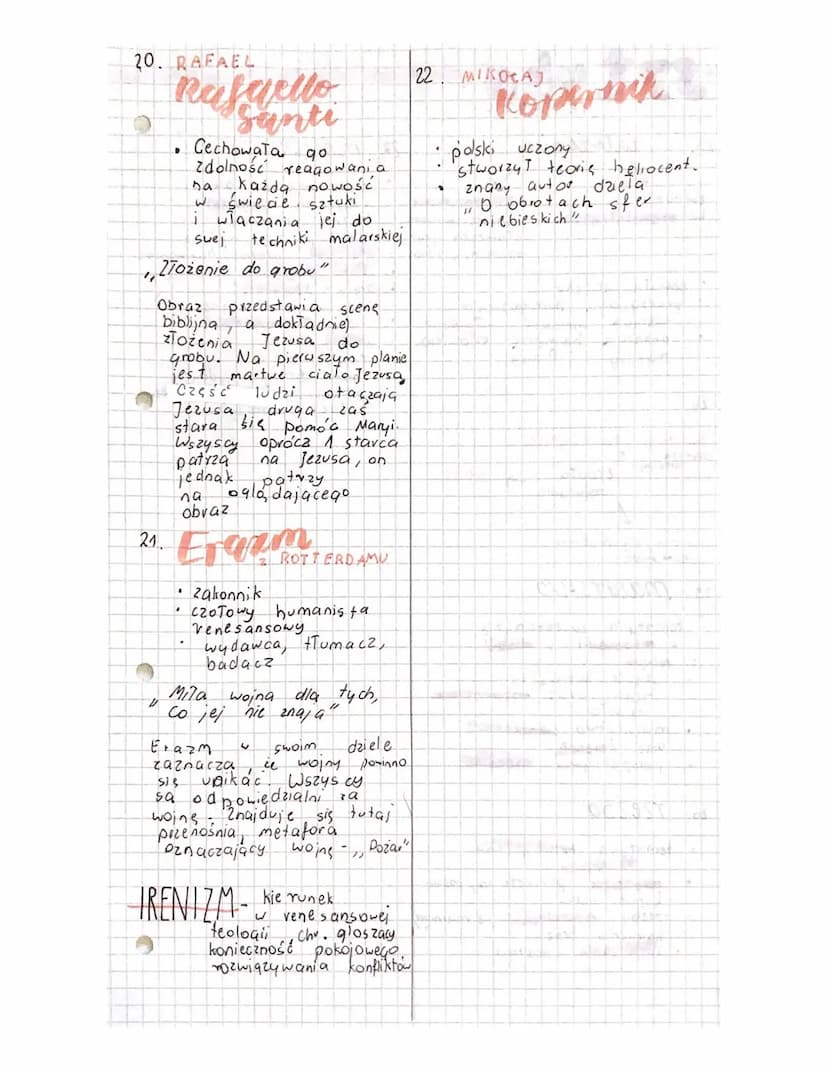 20. RAFAEL
Rafaello
Santi
• Cechowała go
zdolność reagowania
na każdą nowość
w świecie sztuki
i włączania jej do
swej techniki malarskiej
„Złożenie do grobu"
Obraz przedstawia scenę
biblijną, a dokładniej
złożenia Jezusa do
grobu. Na pierwszym planie
jest martwe ciało Jezusa,
Część ludzi otaczają
Jezusa, druga zaś
stara się pomóc Maryi.
Wszyscy oprócz 1 starca
patrzą na Jezusa, on
jednak patrzy
na oglądającego
obraz
21. Erazm
z ROTTERDAMU
• zakonnik
• czołowy humanista
renesansowy
• wydawca, tłumacz,
badacz
„Miła wojna dla tych,
co jej nie znają"
Erazm w swoim dziele
zaznacza, że wojny powinno
się unikać. Wszyscy
są odpowiedzialni za
wojnę. Znajduje się tutaj
przenośnia, metafora
oznaczający wojnę - „Pożar"
IRENIZM - kierunek
w renesansowej
teologii chr. głoszący
konieczność pokojowego
rozwiązywania konfliktów
22. MIKOŁAJ
Kopernik
• polski uczony
• stworzył teorię heliocent.
• znany autor dzieła
"O obrotach sfer
niebieskich"